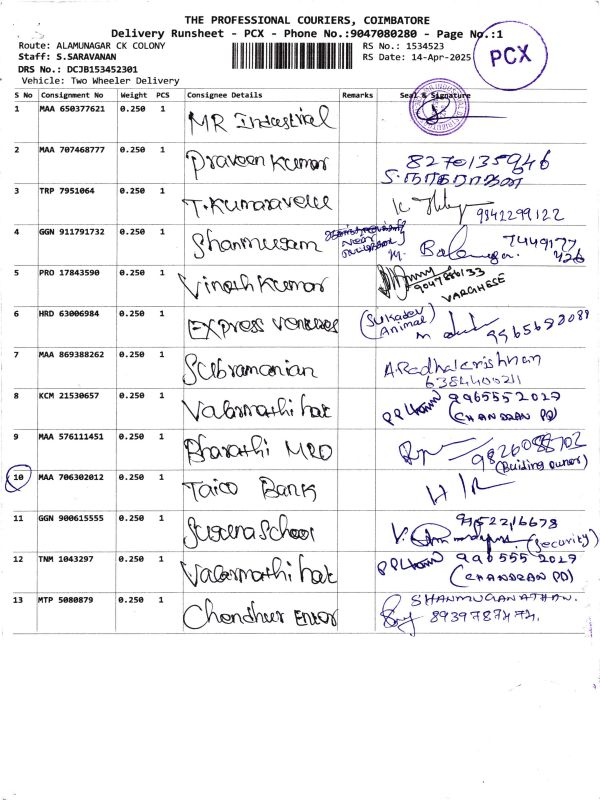 THE PROFESSIONAL COURIERS, COIMBATORE
Delivery Runsheet - PCX - Phone No.:9047080280 - Page No.:1
Route: ALAMUNAGAR CK COLONY
RS No.: 1534523
Staff: S.SARAVANAN
RS Date: 14-Apr-2025
PCX
DRS No.: DCJB153452301
Vehicle: Two Wheeler Delivery
S No Consignment No Weight PCS Consignee Details Remarks Seal & Signature
1 MAA 650377621 0.250 1 MR Industrial
2 MAA 707468777 0.250 1 Praveen Kumar 8270135946
S. நாகராஜன்
3 TRP 7951064 0.250 1 T. Kumaravelu 9342299122
4 GGN 911791732 0.250 1 Shanmugam M. 7449177
426
5 PRO 17843590 0.250 1 Vinoth Kumar
VARGHESE
6 HRD 63006984 0.250 1 Express Ventures (Sukadev
Animal)
7 MAA 869388262 0.250 1 Subramanian A. Radhakrishnan
6384400211
8 KCM 21530657 0.250 1 Valarmathi hat 9965552029
(CHANDRAN PD)
9 MAA 576111451 0.250 1 Bharathi MRO 9826088702
(Building owner)
10 MAA 706302012 0.250 1 Taico Bank
11 GGN 900615555 0.250 1 Suguna School V.
(Security)
12 TNM 1043297 0.250 1 Valarmathi hat
(CHANDRAN PD)
13 MTP 5080879 0.250 1 SHANMUGANATHAN.
8939787474.